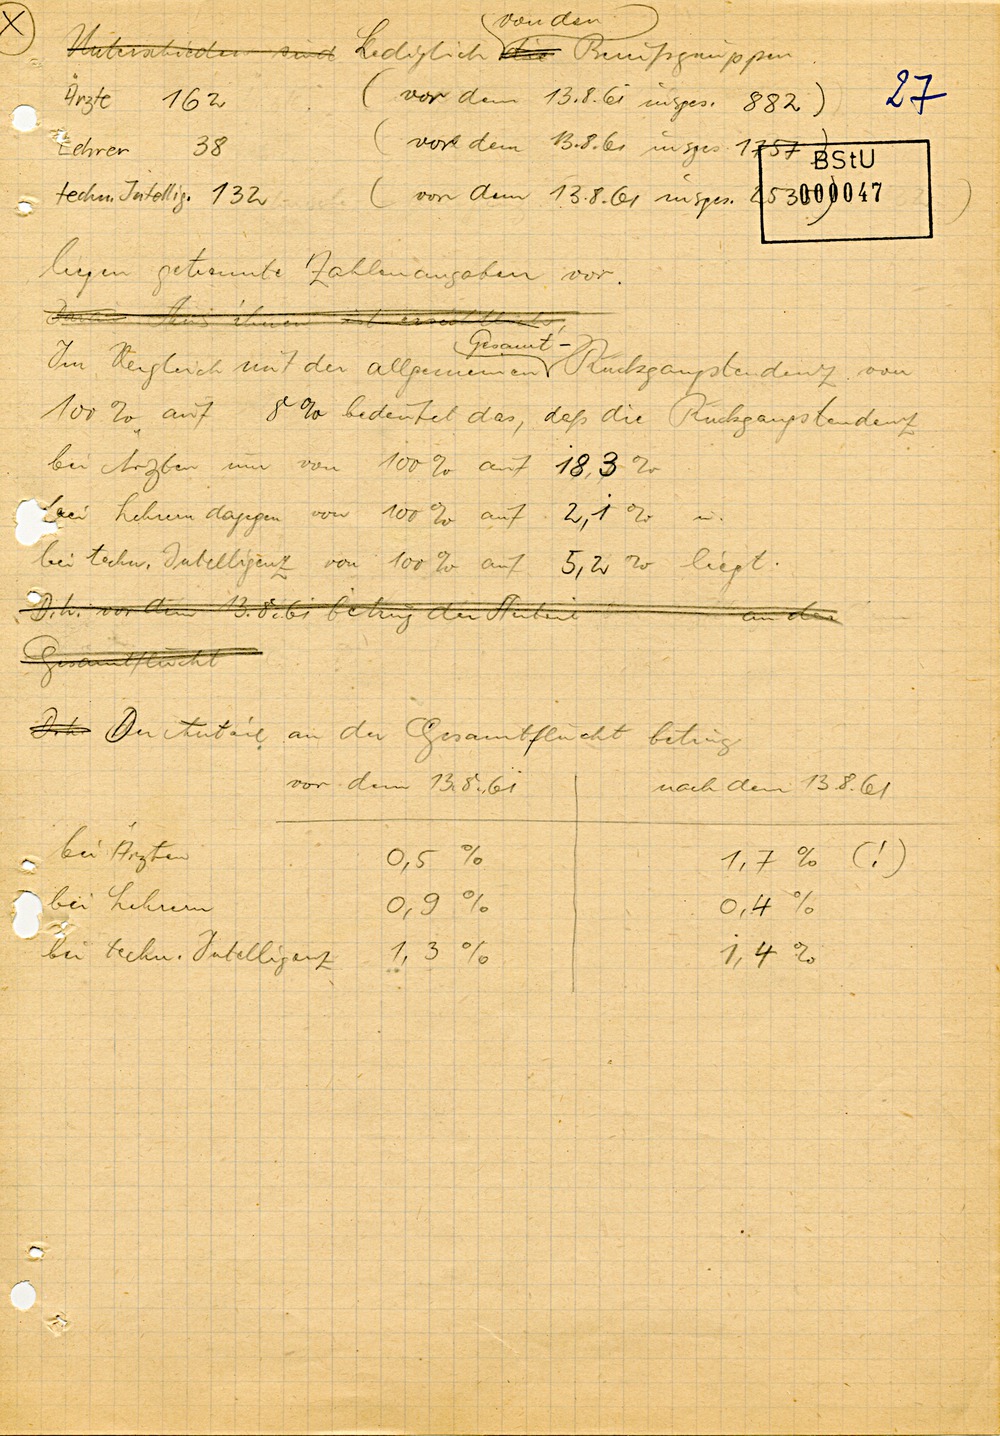 X
von den
Unterschieden sind Lediglich die Berufsgruppen
Ärzte 162 (vor dem 13.8.61 insges. 882)
27
Lehrer 38 (vor dem 13.8.61 insges. 1757)
BStU
000047
techn. Intellig. 132 (vor dem 13.8.61 insges. 2530)
liegen getrennte Zahlenangaben vor.
Aus ihnen ist ersichtlich,
Gesamt-
Im Vergleich mit der allgemeinen Rückgangstendenz von
100 % auf 8 % bedeutet das, daß die Rückgangstendenz
bei Ärzten nur von 100 % auf 18,3 %
bei Lehrern dagegen von 100 % auf 2,1 % u.
bei techn. Intelligenz von 100 % auf 5,2 % liegt.
D.h. vor dem 13.8.61 betrug der Anteil an der
Gesamtflucht
D.h. Der Anteil an der Gesamtflucht betrug
vor dem 13.8.61 nach dem 13.8.61
bei Ärzten 0,5 % 1,7 % (!)
bei Lehrern 0,9 % 0,4 %
bei techn. Intelligenz 1,3 % 1,4 %